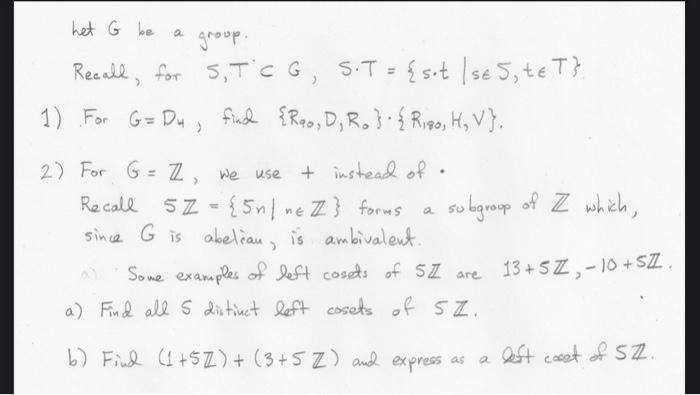 Let G be a group.
Recall, for S, T ⊂ G, S·T = {s·t | s∈S, t∈T}
1) For G = D₄, find {R₉₀, D, R₀}·{R₁₈₀, H, V}.
2) For G = ℤ, we use + instead of ·
Recall 5ℤ = {5n | n∈ℤ} forms a subgroup of ℤ which,
since G is abelian, is ambivalent.
Some examples of left cosets of 5ℤ are 13+5ℤ, -10+5ℤ.
a) Find all 5 distinct left cosets of 5ℤ.
b) Find (1+5ℤ)+(3+5ℤ) and express as a left coset of 5ℤ.